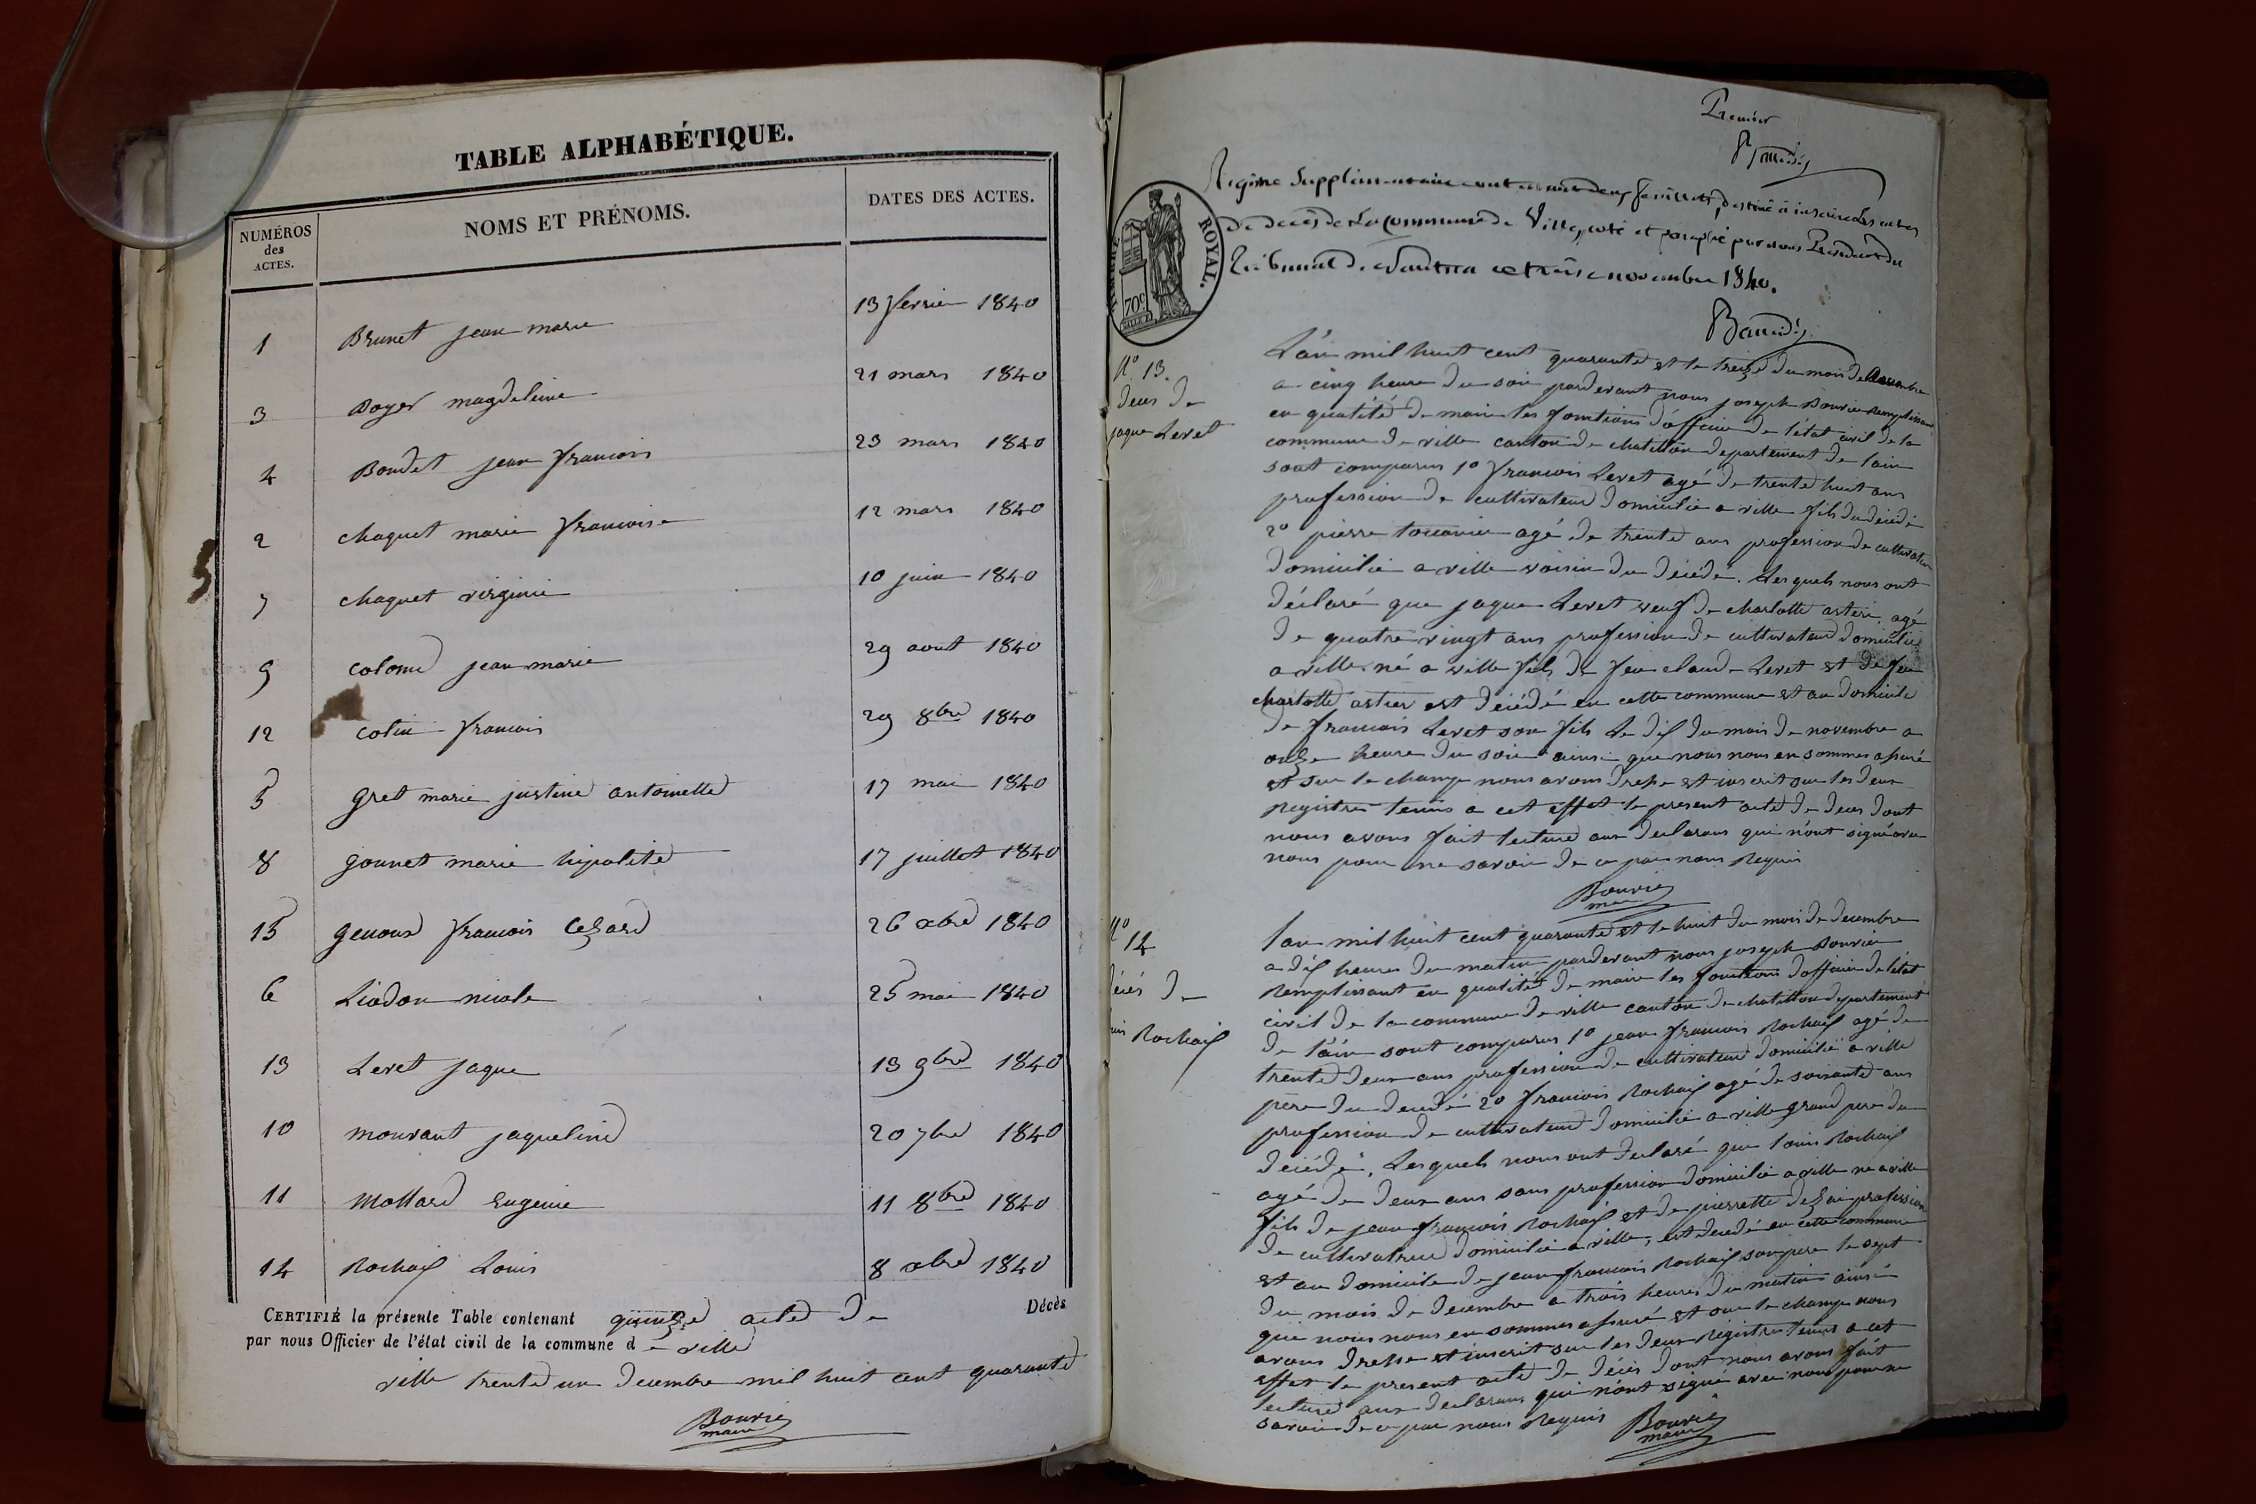 TABLE ALPHABÉTIQUE.
NUMÉROS des ACTES. NOMS ET PRÉNOMS. DATES DES ACTES.
1 Brunet jean marie 13 fevrier 1840
3 Boyer magdeleine 21 mars 1840
4 Boudet jean francois 23 mars 1840
2 chaquet marie francoise 12 mars 1840
7 chaquet virginie 10 juin 1840
9 colomd jean marie 29 aout 1840
12 colin francois 29 8bre 1840
5 gret marie justine antoinette 17 mai 1840
8 gounet marie hipolite 17 juillet 1840
15 genoud francois Cezard 26 xbre 1840
6 Liodon nicole 25 mai 1840
13 Levet jaque 13 9bre 1840
10 mourant jaqueline 20 7bre 1840
11 Mollard Eugenie 11 8bre 1840
14 Rochaix Louis 8 xbre 1840
CERTIFIÉ la présente Table contenant quinze acte de Décès
par nous Officier de l'état civil de la commune d e ville
ville trente un decembre mil huit cent quarante
Bouvier
maire
Premier
Régitre Supplémentaire contenant deux feuillets, destiné à inscrire les actes
De décès de la Commune de Ville, coté et paraphé par nous Président du
Tribunal de Nantua ce treize novembre 1840.
ROYAL.
70c
N° 13.
deces de
jaque Levet
L'an mil huit cent quarante et le treize du mois de Novembre
a cinq heure du soir pardevant nous joseph Bouvier Remplissant
en qualité de maire les fonctions d'officier de l'etat civil de la
commune de ville canton de chatillon departement de l'ain
sont comparus 1° francois Levet agé de trente huit ans
profession de cultivateur domicilié a ville fils du décédé
2° pierre agé de trente ans profession de cultivateur
domicilié a ville voisin du décédé. Lesquels nous ont
déclaré que jaque Levet veuf de charlotte astier agé
de quatre vingt ans profession de cultivateur domicilié
a ville né a ville fils de feu claude Levet et de feu
charlotte astier est décédé en cette commune et au domicile
de francois Levet son fils Le dix du mois de novembre a
onze heure du soir ainsi que nous nous en sommes assuré
et sur le champ nous avons dressé et inscrit sur les deux
registres tenus a cet effet le present acte de deces dont
nous avons fait lecture aux declarans qui n'ont signé avec
nous pour ne savoir de ce par nous Requis
Bouvier
maire
N° 14
décés de
Rochaix
l'an mil huit cent quarante et le huit du mois de decembre
a dix heures du matin pardevant nous joseph Bouvier
Remplissant en qualité de maire les fonctions d'officier de l'état
civil de la commune de ville canton de chatillon departement
de l'ain sont comparus 1° jean francois Rochaix agé de
trente deux ans profession de cultivateur domicilié a ville
père du decedé 2° francois Rochaix agé de soixante ans
profession de cultivateur domicilié a ville grand pere du
décédé. Lesquels nous ont declaré que louis Rochaix
agé de deux ans sans profession domicilié a ville né a ville
fils de jean francois Rochaix et de pierrette profession
de cultivatrice domicilié a ville, est decedé en cette commune
et au domicile de jean francois Rochaix son pere le sept
du mois de decembre a trois heures du matin ainsi
que nous nous en sommes assuré et sur le champ nous
avons dressé et inscrit sur les deux Registres tenus a cet
effet le present acte de décès dont nous avons fait
lecture aux declarans qui n'ont signé avec nous pour ne
savoir de ce par nous Requis
Bouvier
maire